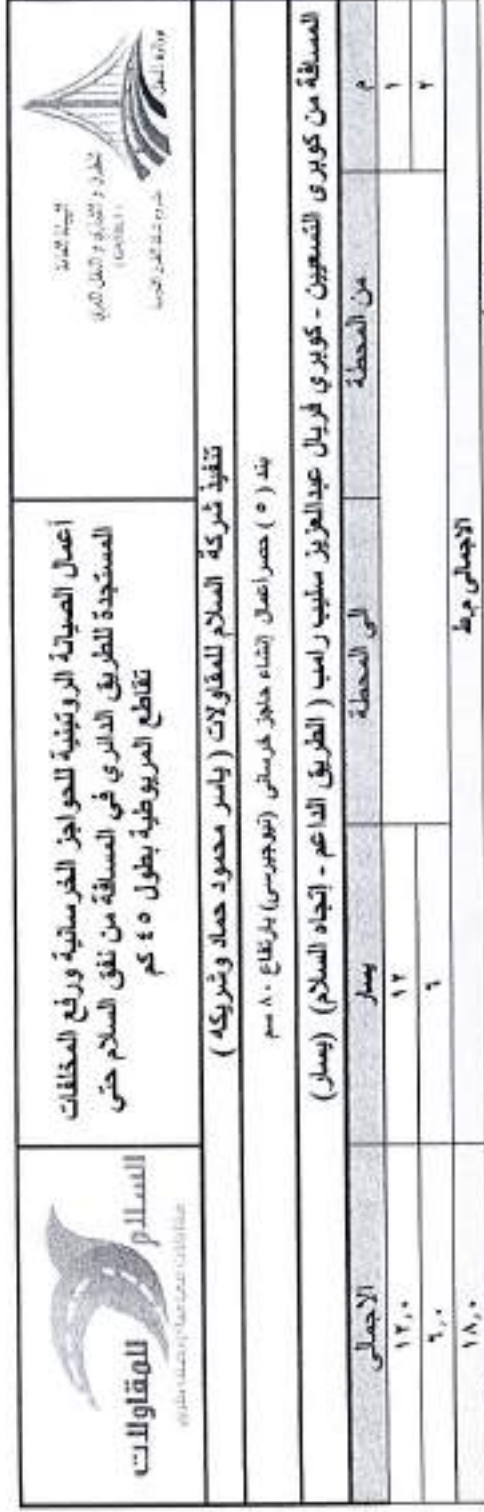 وزارة النقل
الهيئة العامة
للطرق و الكباري و النقل البري
(GARBLT)
أعمال الصيانة الروتينية للحواجز الخرسانية ورفع المخلفات
المستجدة للطريق الدائري فى المسافة من نفق السلام حتى
تقاطع المريوطية بطول ٤٥ كم
السلام
للمقاولات
تنفيذ شركة السلام للمقاولات ( ياسر محمود حماد وشريكه )
بند ( ٥ ) حصر اعمال إنشاء حاجز خرسانى (نيوجيرسى) بارتفاع ٨٠ سم
المسافة من كوبرى التسعين - كوبري فريال عبدالعزيز سليب رامب ( الطريق الداعم - إتجاه السلام) (يسار)
م من المحطة الى المحطة يسار الاجمالى
١ ١٢ ١٢,٠
٢ ٦ ٦,٠
الاجمالى م.ط ١٨,٠